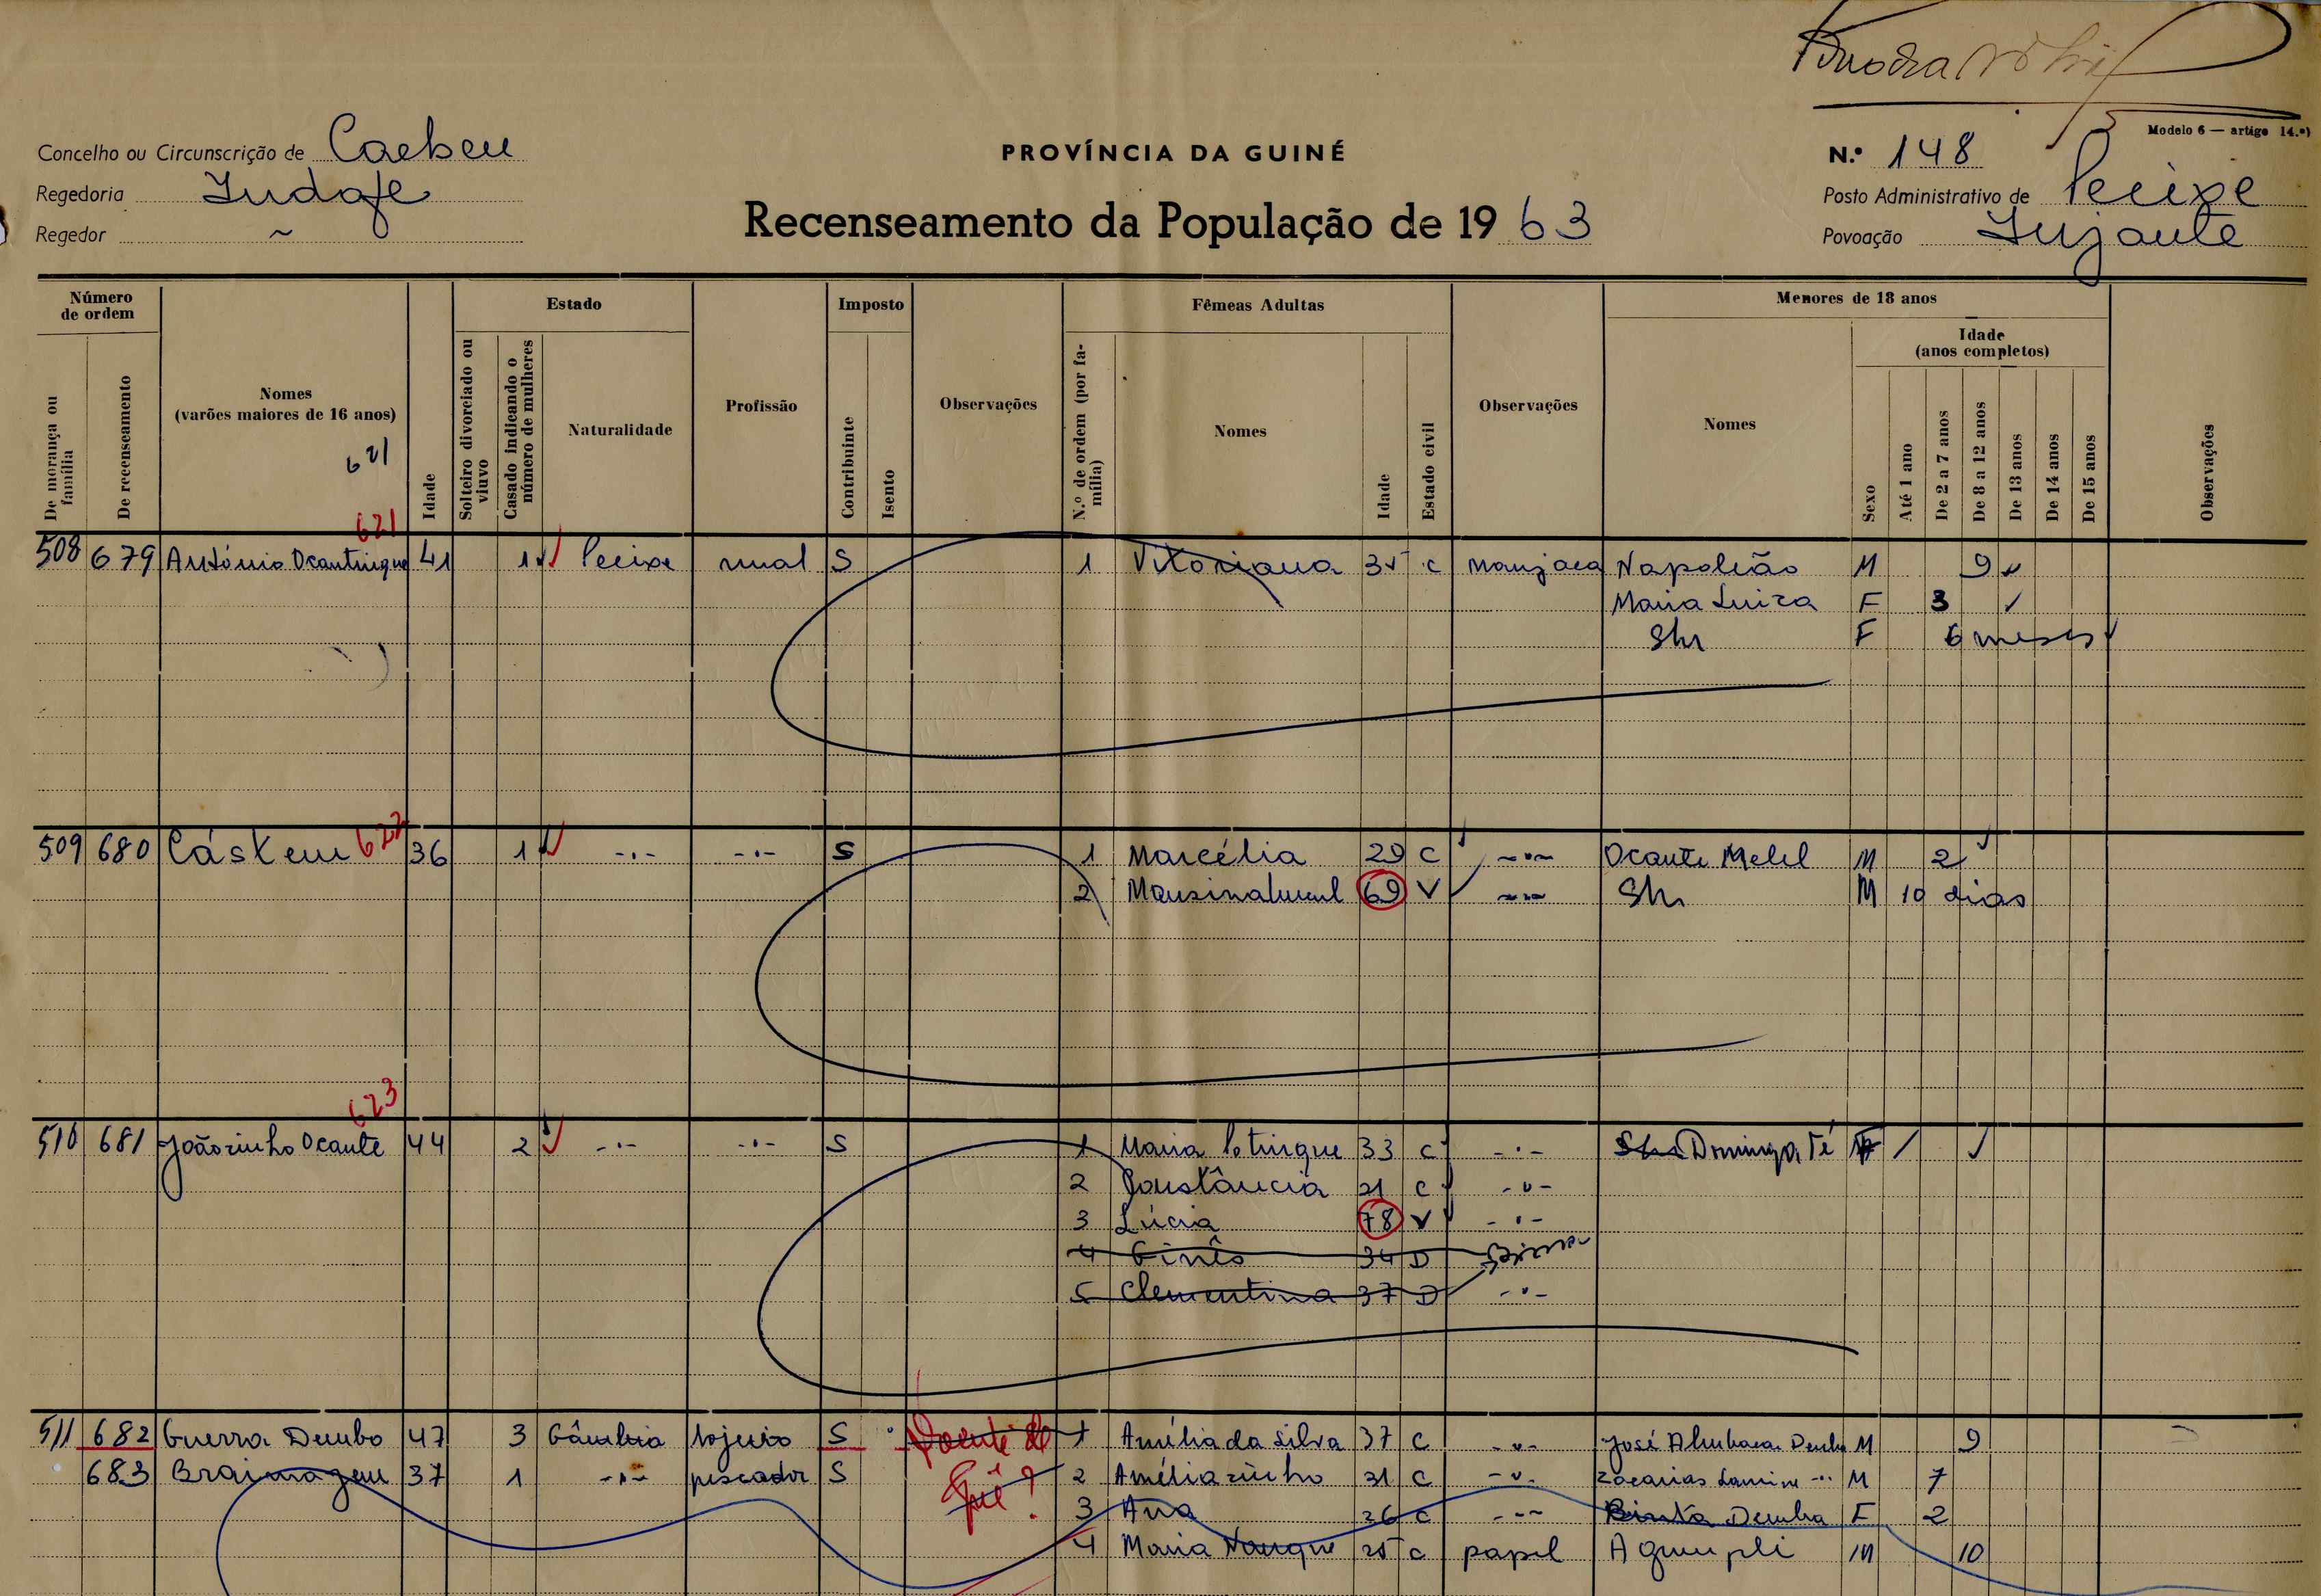 Modelo 6 — artigo 14.º)
Concelho ou Circunscrição de Caebeu
PROVÍNCIA DA GUINÉ
N.º 148
Regedoria
Recenseamento da População de 1963
Posto Administrativo de Pecixe
Regedor ~
Povoação
Número de ordem
Estado
Imposto
Fêmeas Adultas
Menores de 18 anos
Idade
(anos completos)
De morança ou família
De recenseamento
Nomes
(varões maiores de 16 anos)
621
Idade
Solteiro divorciado ou viuvo
Casado indicando o número de mulheres
Naturalidade
Profissão
Contribuinte
Isento
Observações
N.º de ordem (por família)
Nomes
Idade
Estado civil
Observações
Nomes
Sexo
Até 1 ano
De 2 a 7 anos
De 8 a 12 anos
De 13 anos
De 14 anos
De 15 anos
Observações
621
508 679 António Ocantingue 41 1 Pecixe rural S 1 Vitoriana c manjaca Napoleão M 9
Maria Luiza F 3
F 6 meses
622
509 680 36 1 -.- -.- S 1 Marcélia 29 C -.- Ocante M 2
2 69 V -.- M 10 dias
623
510 681 Joãozinho Ocante 44 2 -.- -.- S 1 Maria 33 c -.- Dominga Té F
2 21 c -.-
3 Lúcia 78 V -.-
4 34 D
5 Clementina 37 D -.-
511 682 Guerra Dembo 47 3 Gâmbia S Doente de 1 Amélia da Silva 37 c -.- José M 9
683 37 1 -.- pescador S quê? 2 Améliazinho 31 c -.- Zacarias Lamine -.- M 7
3 Ana 26 c -.- Binta Demba F 2
4 Maria Nanque 25 c papel M 10